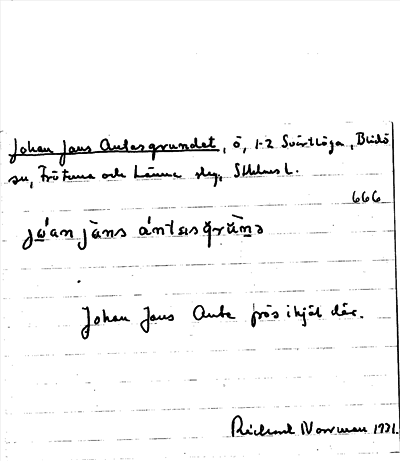 Johan Jans Antesgrundet, ö, 1-2 Svartlöga, Blidö
sn, Frötuna och Länna skg, Sthlms L.
666
Johan Jans Ante frös ihjäl där.
Richard Norrman 1931.